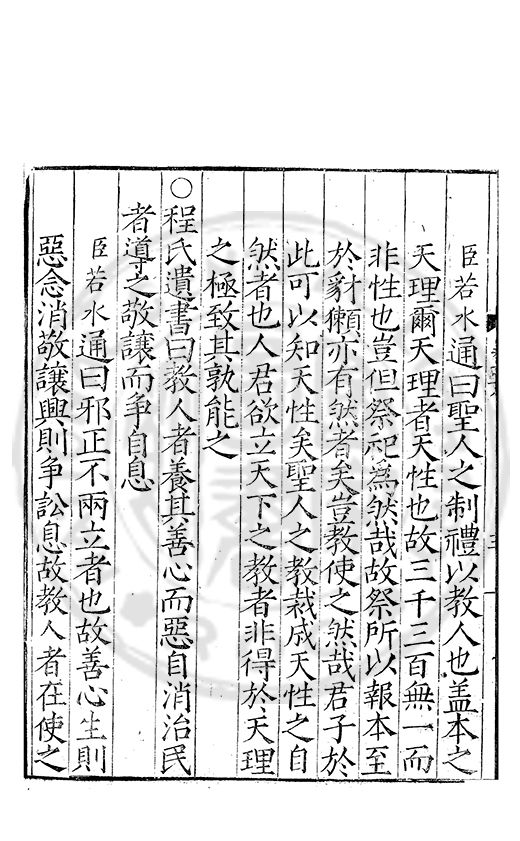 臣若水通曰聖人之制禮以教人也盖本之
天理爾天理者天性也故三千三百無一而
非性也豈但祭祀為然哉故祭所以報本至
於豺獺亦有然者矣豈教使之然哉君子於
此可以知天性矣聖人之教裁成天性之自
然者也人君欲立天下之教者非得於天理
之極致其孰能之
○程氏遺書曰教人者養其善心而惡自消治民
者導之敬讓而争自息
臣若水通曰邪正不兩立者也故善心生則
惡念消敬讓興則争訟息故教人者在使之